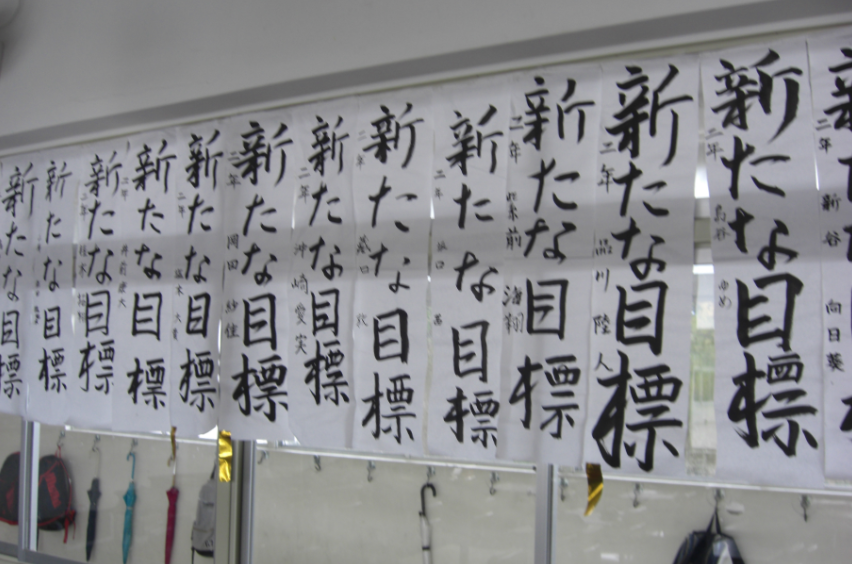 新たな目標
新たな目標
新たな目標
新たな目標
新たな目標
二年 岡田 紗佳
新たな目標
二年 神崎 愛実
新たな目標
二年
新たな目標
二年
新たな目標
二年 紫前 海翔
新たな目標
二年 品川 陸人
新たな目標
二年 島谷 ゆめ
新たな目標
二年 新谷 向日葵